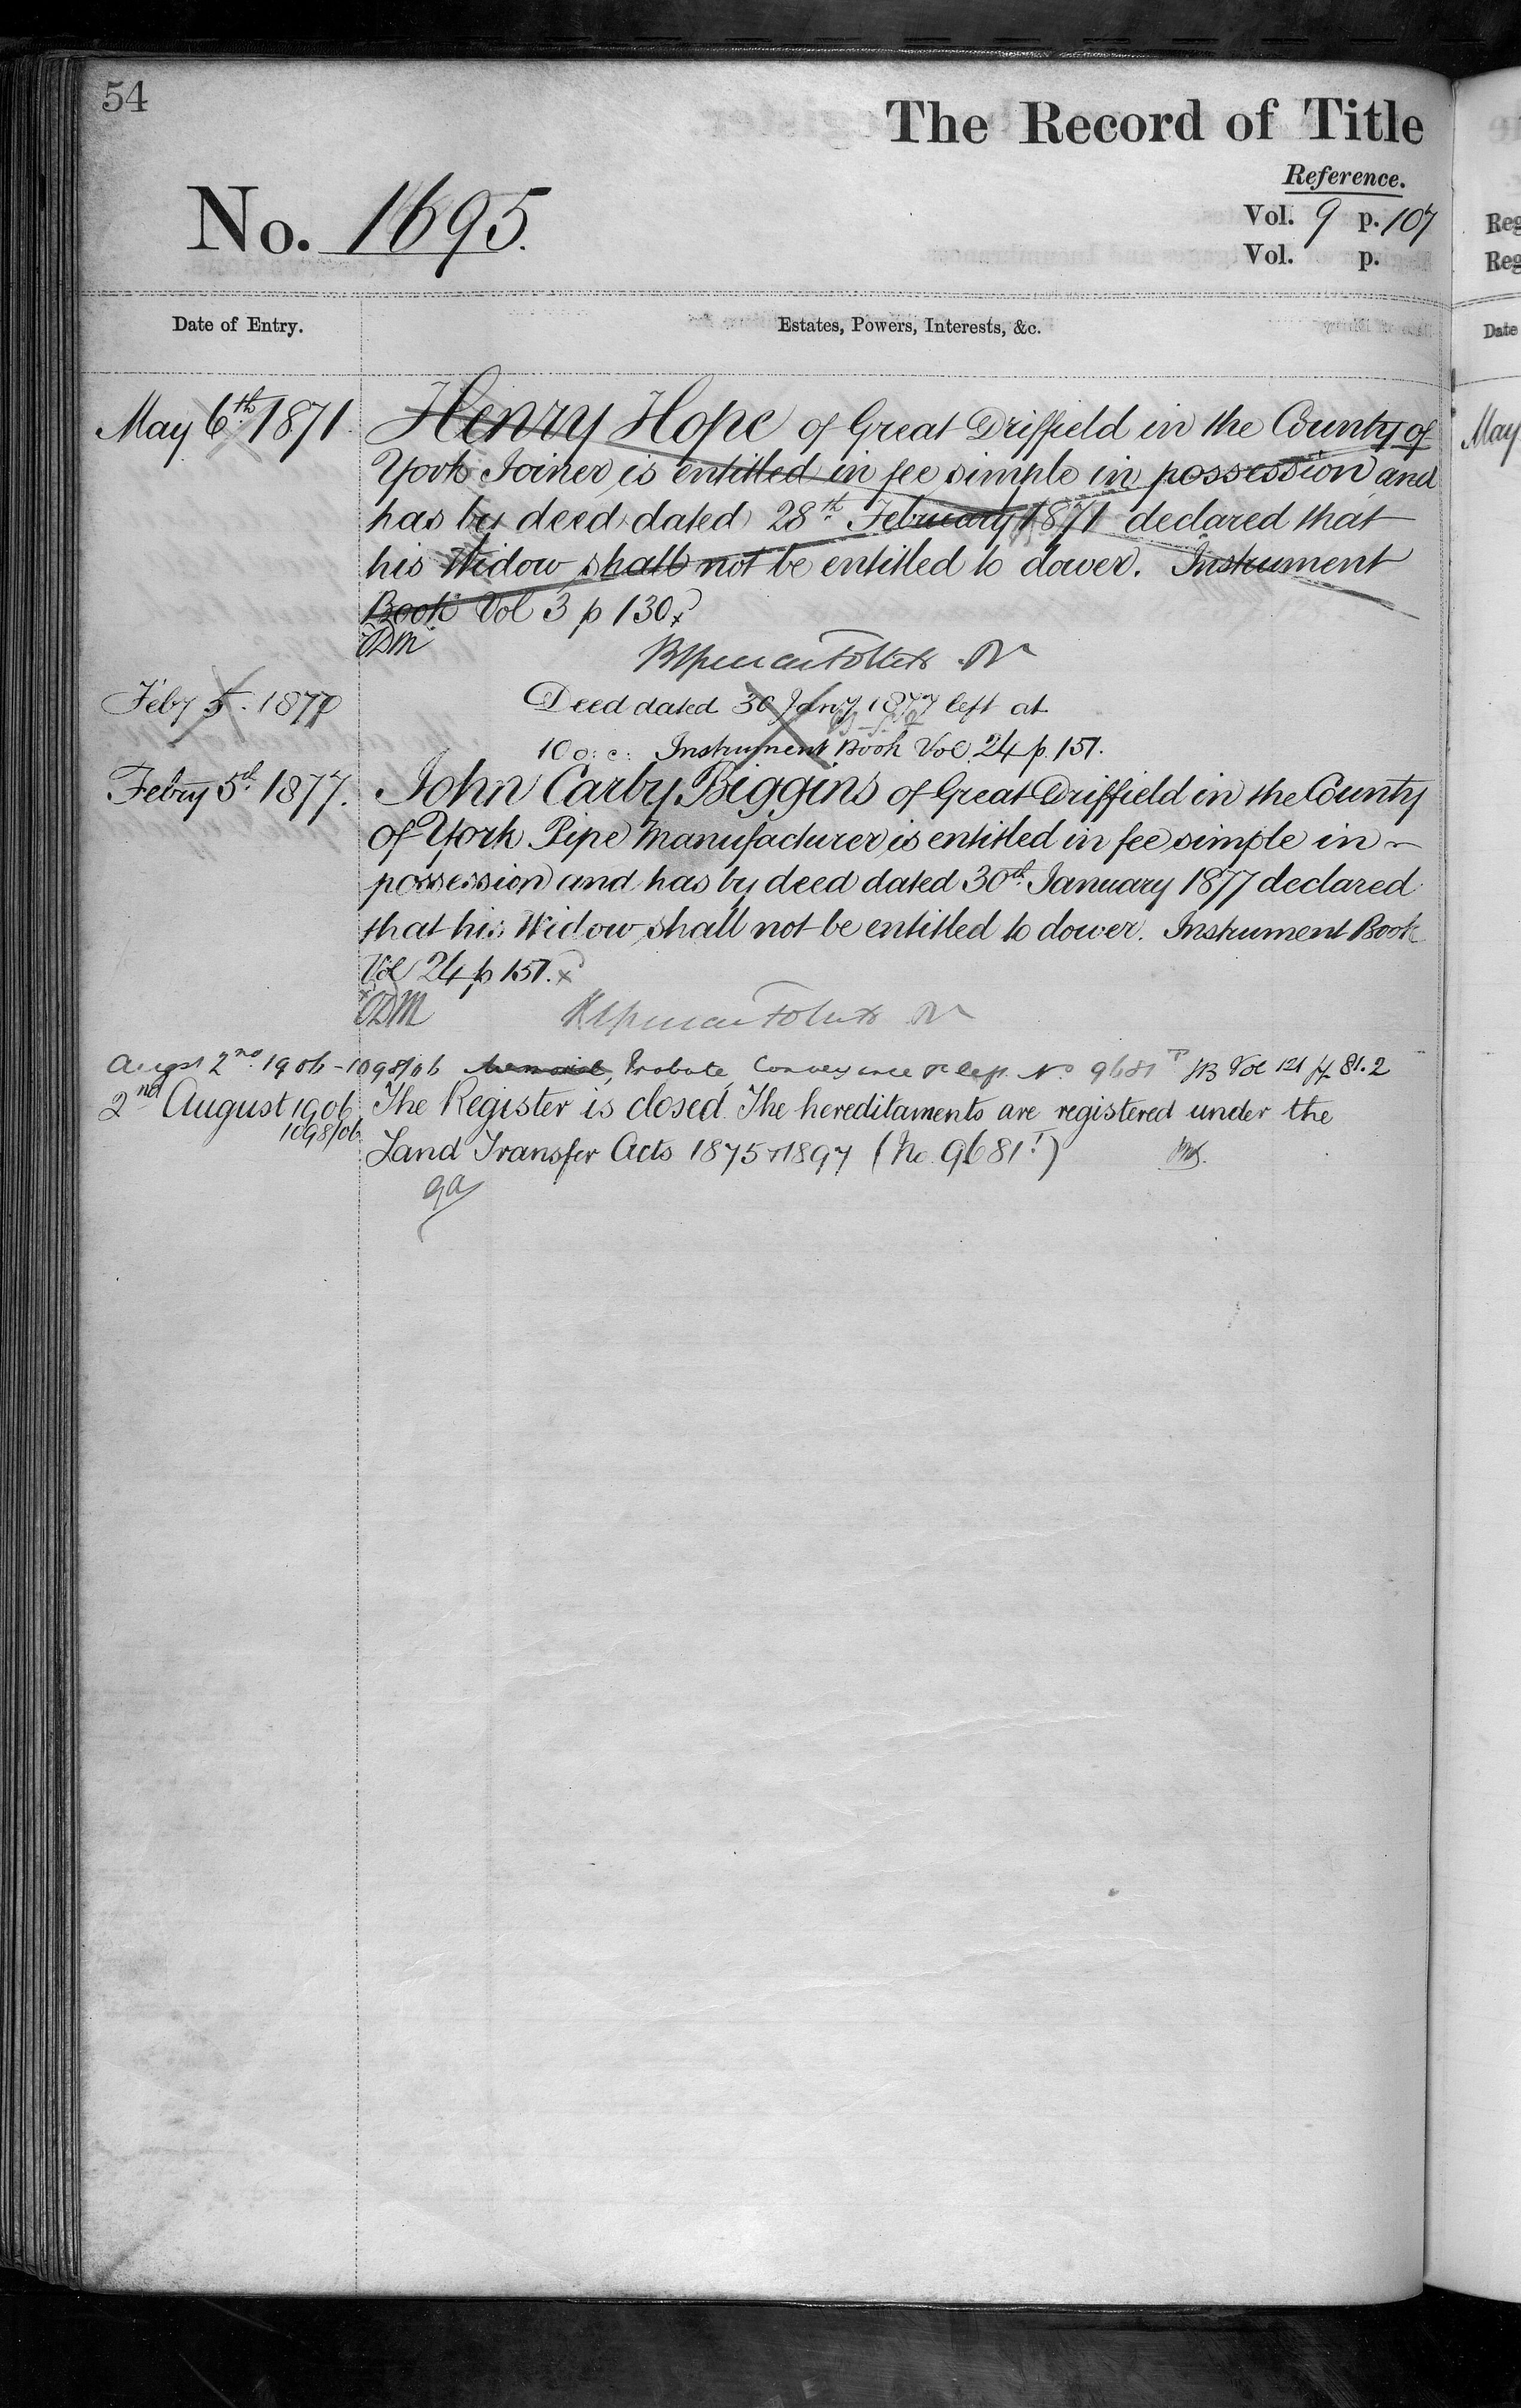 54
The Record of Title
Reference.
No. 1695.
Vol. 9 p. 107
Vol. p.
Date of Entry.
Estates, Powers, Interests, &c.
May 6th 1871. Henry Hope of Great Driffield in the County of
York Joiner is entitled in fee simple in possession and
has by deed dated 28th February 1871 declared that
his Widow shall not be entitled to dower. Instrument
Book Vol 3 p 130.
DM
Feby 5. 1877 Deed dated 30 Jany 1877 left at
10 o. c. Instrument Book Vol. 24 p. 151.
Febry 5th 1877. John Carby Biggins of Great Driffield in the County
of York Pipe Manufacturer is entitled in fee simple in
possession and has by deed dated 30th January 1877 declared
that his Widow shall not be entitled to dower. Instrument Book
Vol 24 p 151.
DM
Augst 2nd 1906 - 1098/06 Memorial, Probate, Conveyance No 9681 IB Vol 121 pp. 81.2
2nd August 1906 The Register is closed. The hereditaments are registered under the
1098/06
Land Transfer Acts 1875 & 1897 (No. 9681.)
Reg
Reg
Date
May